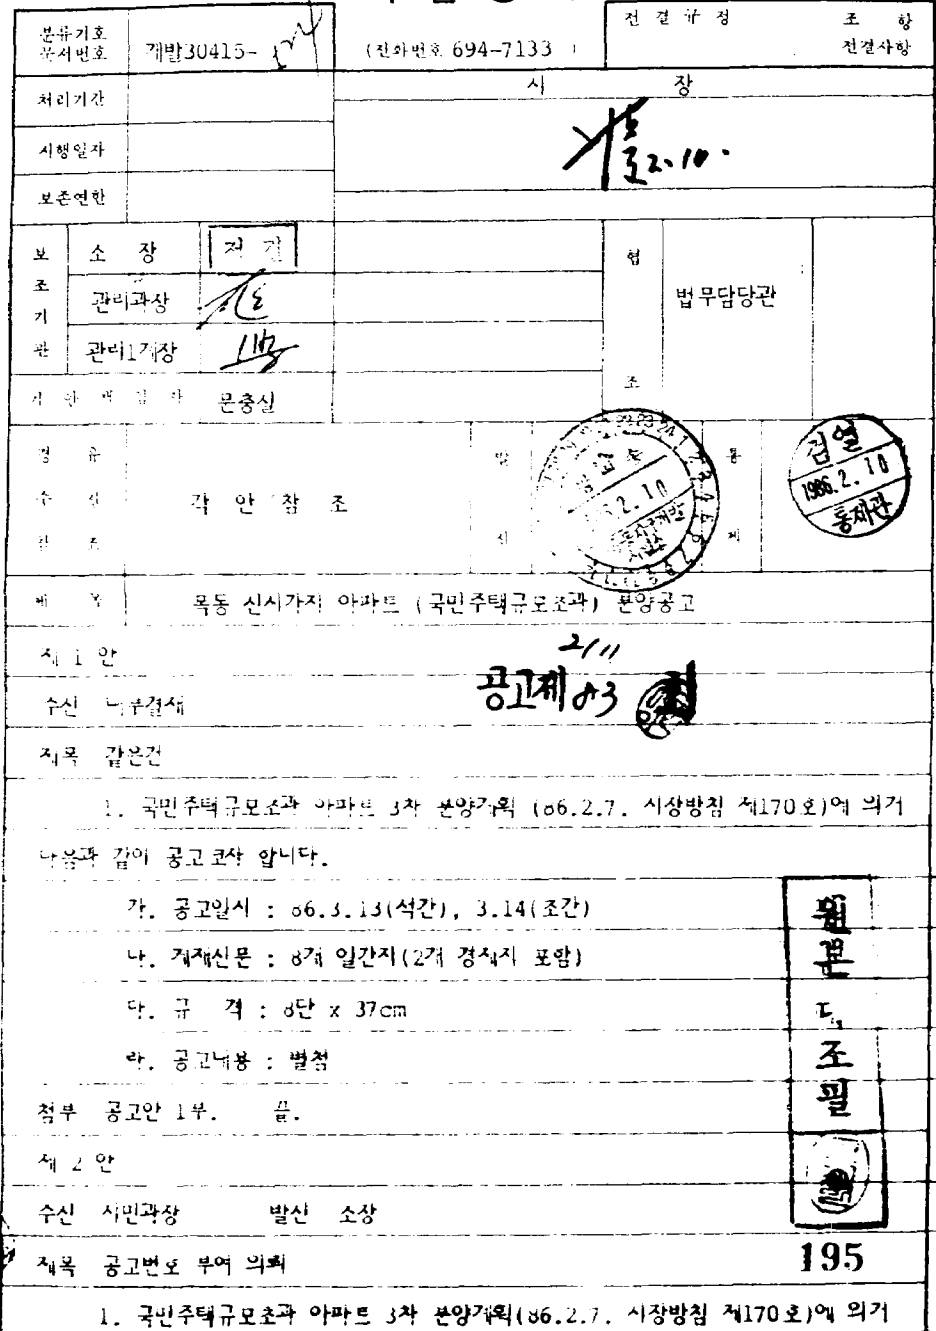 분류기호
문서번호 개발30415- (전화번호 694-7133 )
전결규정 조 항
전결사항
처리기간
시 장
시행일자
2.10.
보존연한
보조기관
소 장 전결
협조
관리과장
법무담당관
관리1계장
문충실
경유
수신
참조
각 안 참 조
발신
통제
검열
1986.2.10
통제관
제 목 목동 신시가지 아파트 (국민주택규모초과) 분양공고
제 1 안
2/11
공고제 83
수신 내부결재
제목 같은건
1. 국민주택규모초과 아파트 3차 분양계획 (86.2.7. 시장방침 제170호)에 의거
다음과 같이 공고코자 합니다.
가. 공고일시 : 86.3.13(석간), 3.14(조간)
나. 게재신문 : 8개 일간지(2개 경제지 포함)
다. 규 격 : 8단 x 37cm
라. 공고내용 : 별첨
원본대조필
첨부 공고안 1부. 끝.
제 2 안
수신 시민과장 발신 소장
제목 공고번호 부여 의뢰
195
1. 국민주택규모초과 아파트 3차 분양계획(86.2.7. 시장방침 제170호)에 의거